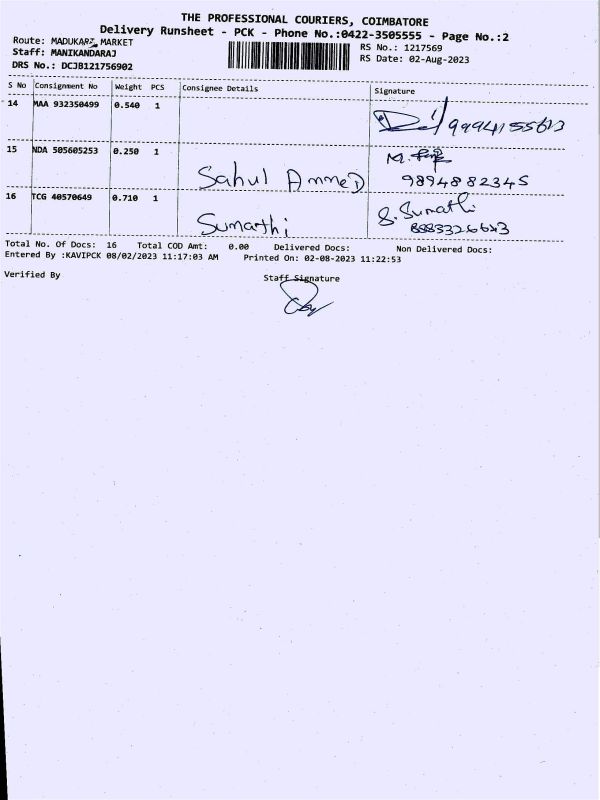 THE PROFESSIONAL COURIERS, COIMBATORE
Delivery Runsheet - PCK - Phone No.:0422-3505555 - Page No.:2
Route: MADUKARI MARKET
Staff: MANIKANDARAJ
DRS No.: DCJB121756902
RS No.: 1217569
RS Date: 02-Aug-2023
S No Consignment No Weight PCS Consignee Details Signature
14 MAA 932350499 0.540 1
15 NDA 505605253 0.250 1
Sahul AmmeD
9894882345
16 TCG 40570649 0.710 1
Sumathi S. Sumathi
Total No. Of Docs: 16 Total COD Amt: 0.00 Delivered Docs: Non Delivered Docs:
Entered By :KAVIPCK 08/02/2023 11:17:03 AM Printed On: 02-08-2023 11:22:53
Verified By Staff Signature